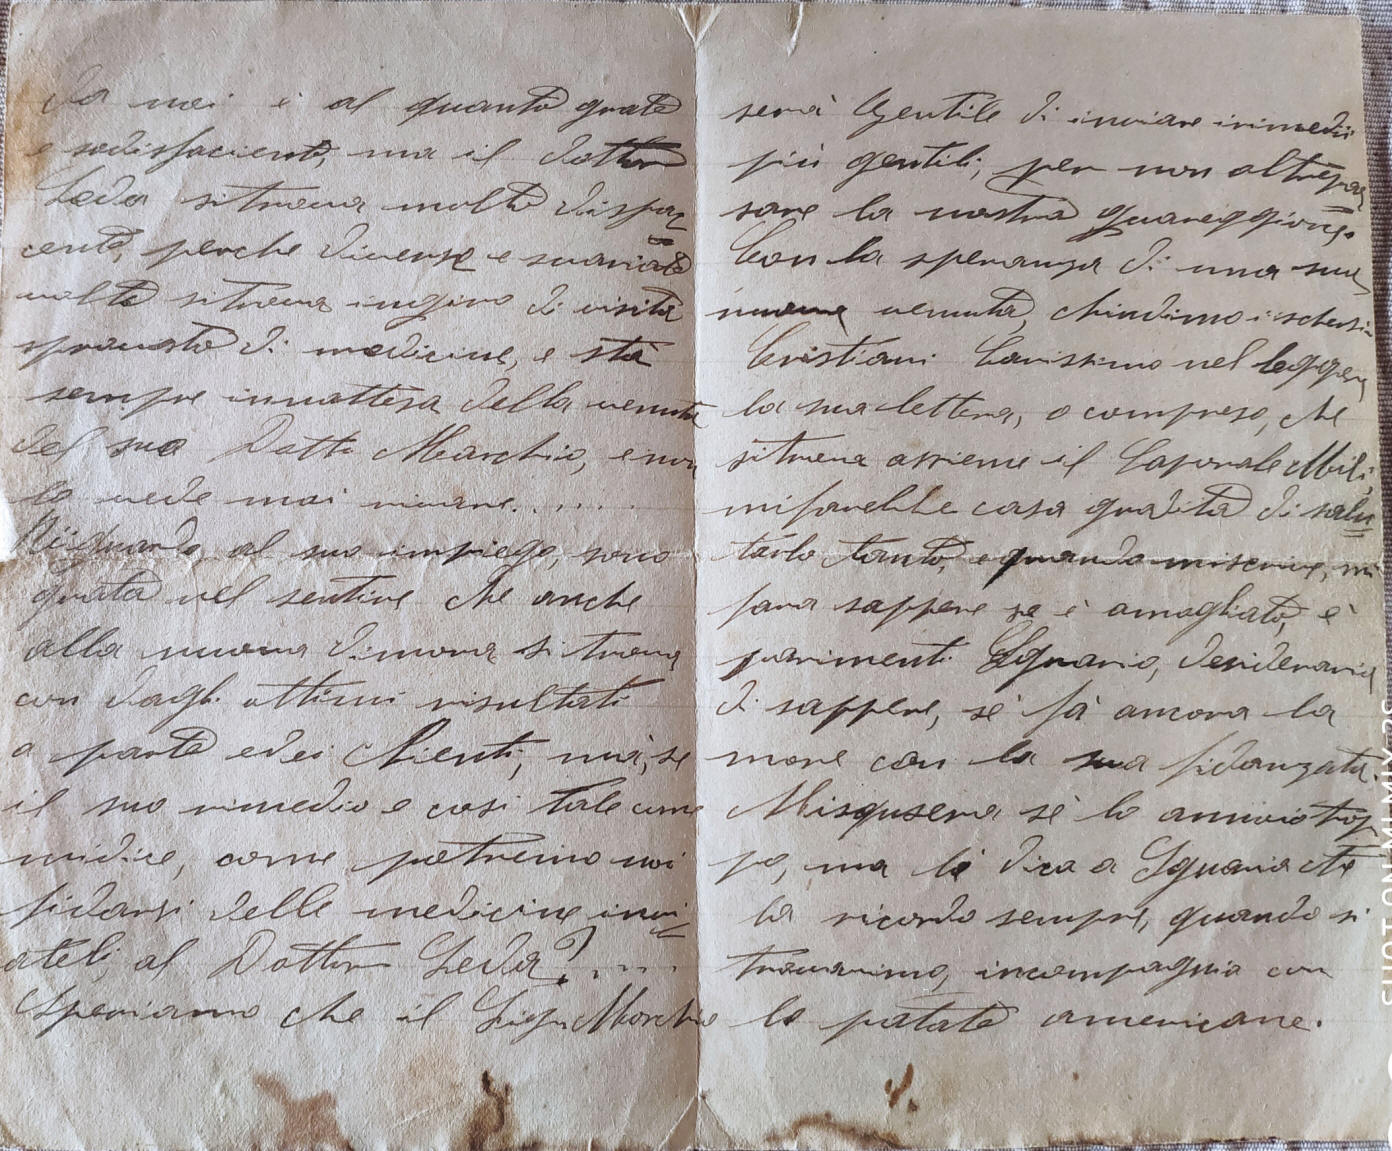 Da noi è al quanto grata
e sodisfacienti, ma il dottor
Leda si trova molto dispia
cente, perche diverse e svariate
volte si trova ingiro di visita
sprovvisto di medicine, e stà
sempre innattesa della venuta
del suo Dott. Marchio, e non
lo vede mai rivare......
Riguardo al suo impiego, sono
grata nel sentire che anche
alla nuova dimora si trova
con dagli ottimi risultati
a parte edei clienti, mà, se
il suo rimedio e cosi tale come
midice, come potremo noi
fidarsi delle medicine invi
ateli al Dottor Leda?....
Speriamo che il Sign. Marchio
serà Gentile di inviare irimedii
più gentili, per non oltrepas
sare la nostra
Con la speranza di una sua
nuova venuta, chiudimo ischersi
Cristiani Carissimo nel leggere
la sua lettera, o compreso, che
sitrova assieme il Caporale Mili,
mifarebbe cosa gradita di salu
tarlo tanto, e quando miscrive, mi
fara sappere se è amogliato, è
parimenti Sguario, desideraria
di sappere, sè fà ancora la
more con la sua fidanzata.
Miscusera sè lo annoio trop
po, ma lè dica a Sguario che
lo ricordo sempre, quando si
trovavimo, incompagnia con
le patate americane.
SHOT ON MI MIX 2S